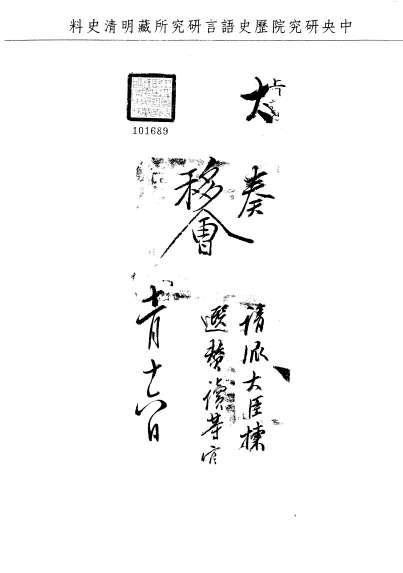 中央研究院歷史語言研究所藏明清史料
101689
大
奏
請派大臣揀
選贊讀等官
移會
十一月十六日